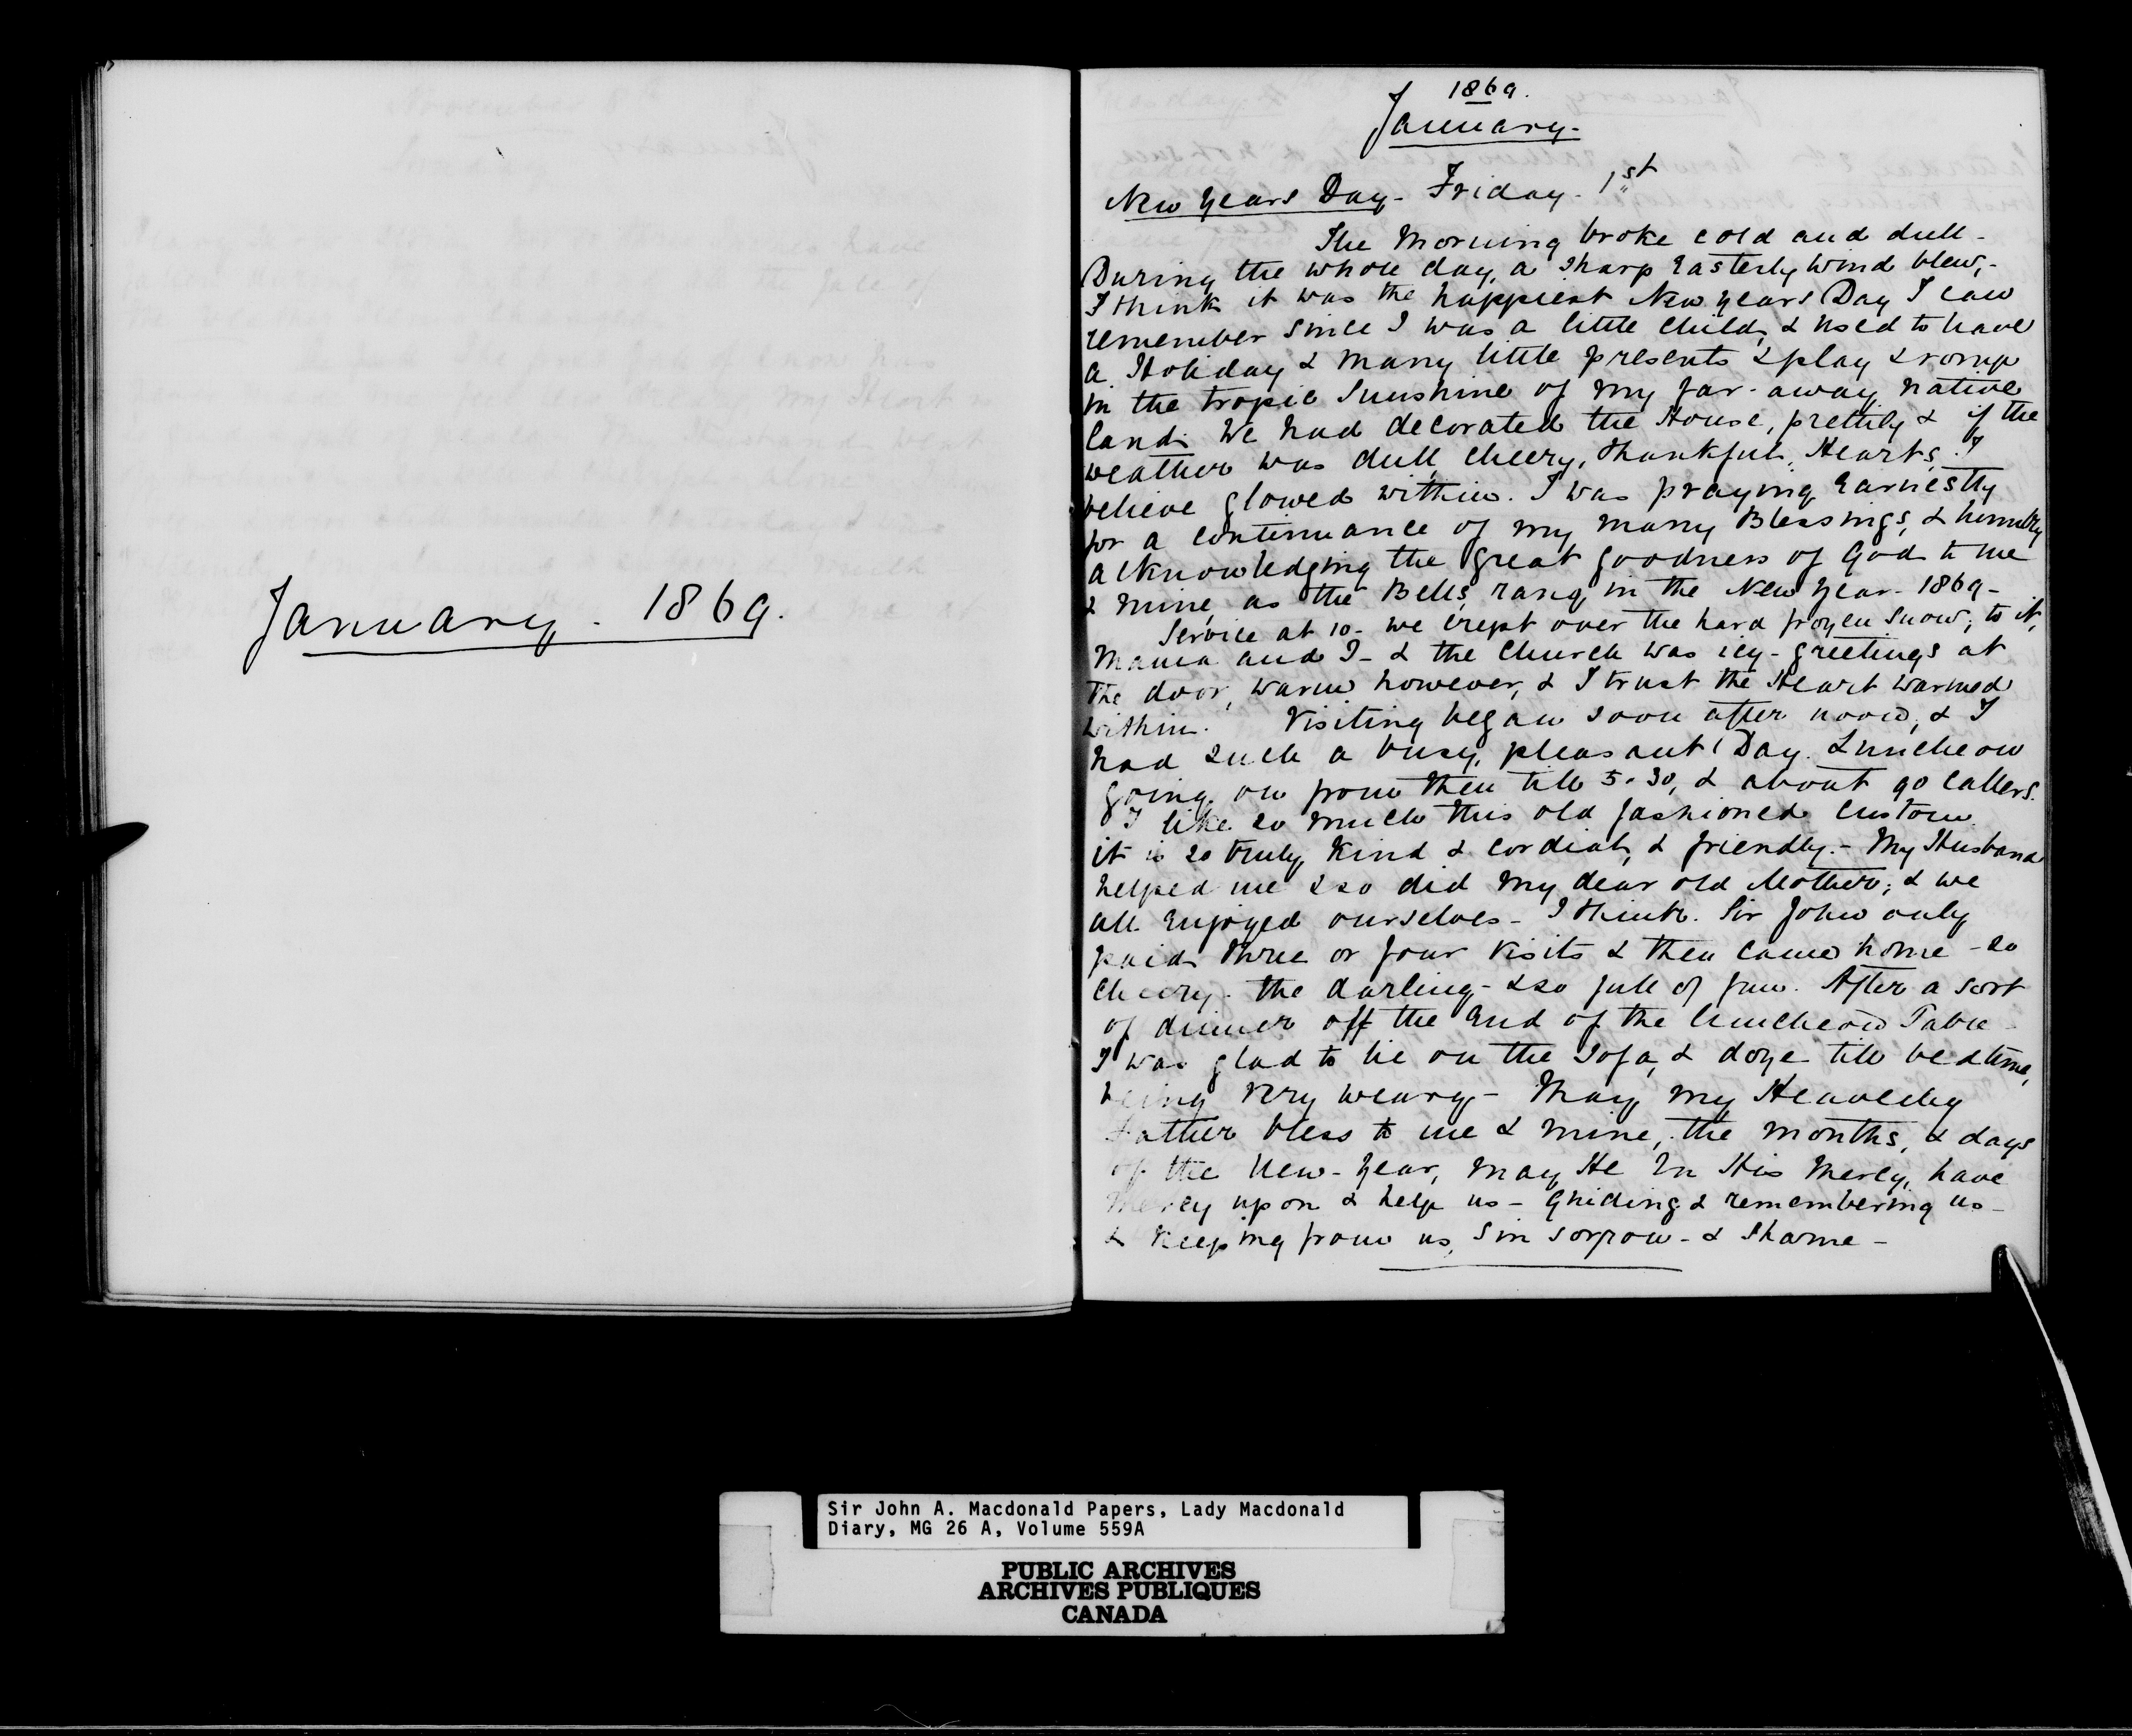 January - 1869.
1869.
January.
New Years Day - Friday - 1st
The Morning broke cold and dull -
During the whole day, a sharp Easterly Wind blew, -
I think it was the happiest New Years Day I can
remember since I was a little child, & used to have
a Holiday & many little presents & play & romp
in the tropic Sunshine of my far-away native
land. We had decorated the House, prettily & if the
weather was dull, cheery, thankful, Hearts, I
believe glowed within. I was praying Earnestly
for a continuance of my many Blessings, & humbly
acknowledging the great goodness of God to me
& mine, as the Bells, rang in the New Year - 1869 -
Service at 10 - we crept over the hard frozen snow, to it,
Mama and I - & the Church was icy - greetings at
the door, warm however, & I trust the Heart warmed
within. Visiting began soon after noon, & I
had such a busy, pleasant Day. Luncheon
going on from then till 5.30, & about 90 callers.
I like so much this old fashioned custom
it is so truly kind & cordial, & friendly. - My Husband
helped me & so did my dear old Mother, & we
all Enjoyed ourselves - I think. Sir John only
paid three or four visits & then came home - so
cheery - the darling - & so full of fun. After a sort
of dinner off the End of the luncheon Table -
I was glad to lie on the Sofa, & doze till bedtime,
being very weary - May my Heavenly
Father bless to me & mine, the months, & days
of the New-Year, may He In His Mercy, have
Mercy upon & help us - Guiding & remembering us -
& keeping from us, Sin Sorrow - & Shame -
Sir John A. Macdonald Papers, Lady Macdonald
Diary, MG 26 A, Volume 559A
PUBLIC ARCHIVES
ARCHIVES PUBLIQUES
CANADA